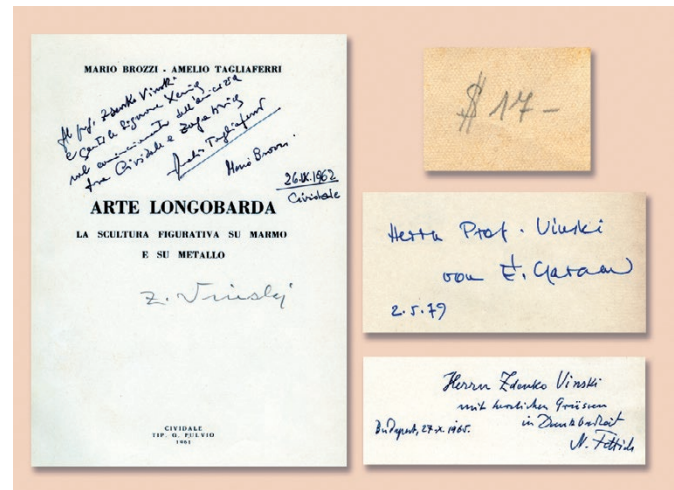 MARIO BROZZI - AMELIO TAGLIAFERRI
Al prof. Zdenko Vinski
e gentile Signora Xenia
nel dell'amicizia
fra Cividale e Zagabria
Amelio Tagliaferri
Mario Brozzi
26.IX.1962
Cividale
ARTE LONGOBARDA
LA SCULTURA FIGURATIVA SU MARMO
E SU METALLO
Z. Vinski
CIVIDALE
TIP. G. FULVIO
1961
$ 17 -
Herrn Prof. Vinski
von É. Garam
2.5.79
Herrn Zdenko Vinski
mit herzlichen Grüssen
in Dankbarkeit
Budapest, 27.X.1965.
N. Fettich